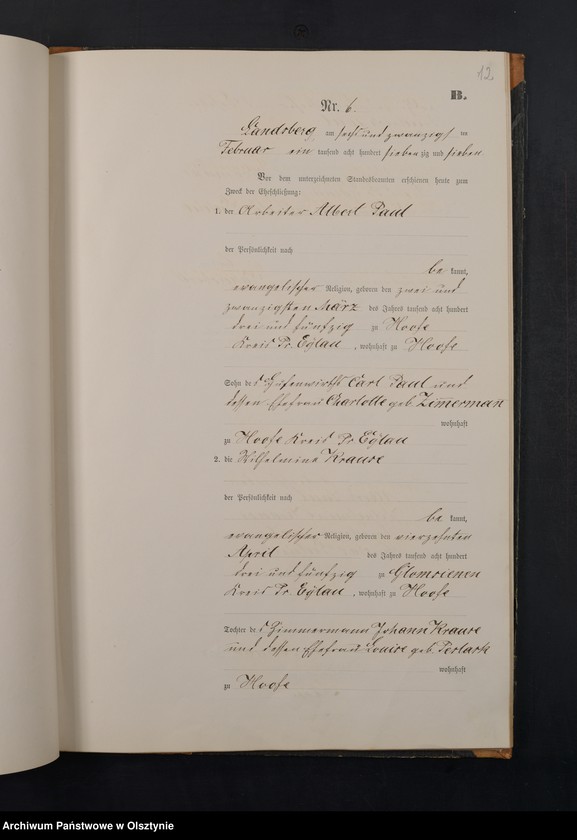 12
B.
Nr. 6.
Landsberg am sechs und zwanzigsten
Februar ein tausend acht hundert siebenzig und sieben.
Vor dem unterzeichneten Standesbeamten erschienen heute zum
Zweck der Eheschließung:
1. der Arbeiter Albert Paul
der Persönlichkeit nach
be kannt,
evangelischer Religion, geboren den zwei und
zwanzigsten März des Jahres tausend acht hundert
drei und fünfzig zu Hoofe
Kreis Pr. Eylau, wohnhaft zu Hoofe
Sohn des Carl Paul und
dessen Ehefrau Charlotte geb. Zimmerman
wohnhaft
zu Hoofe Kreis Pr Eylau
2. die Wilhelmine Krause
der Persönlichkeit nach
be kannt,
evangelischer Religion, geboren den vierzehnten
April des Jahres tausend acht hundert
drei und fünfzig zu Glomsienen
Kreis Pr. Eylau, wohnhaft zu Hoofe
Tochter des Zimmermann Johann Krause
und dessen Ehefrau Louise geb.
wohnhaft
zu Hoofe
Archiwum Państwowe w Olsztynie